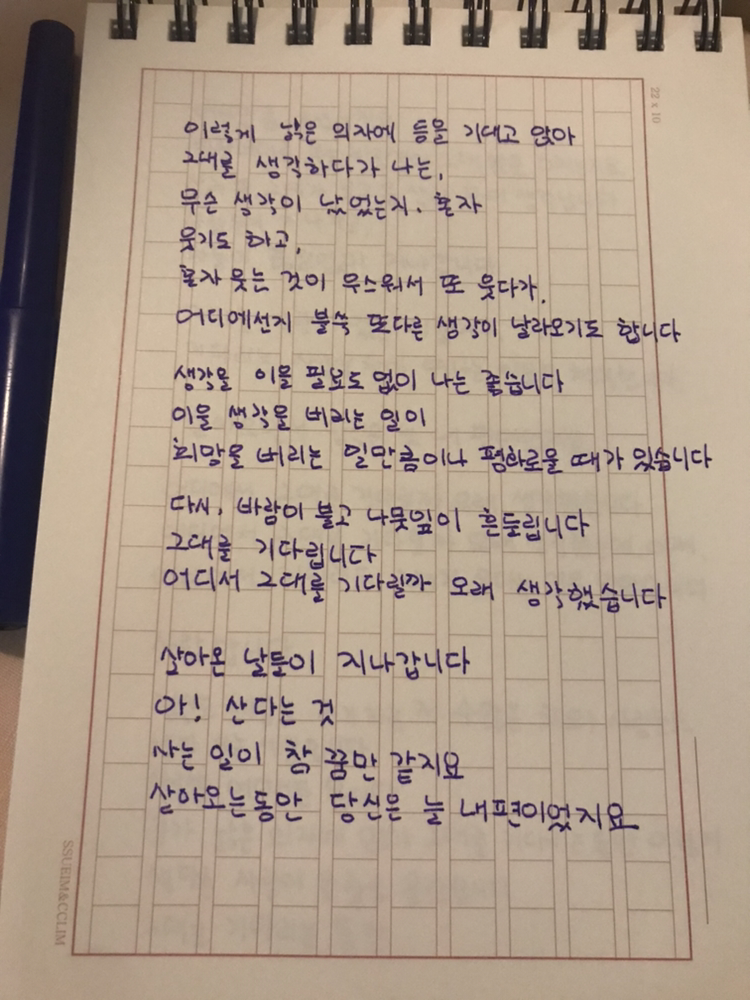 22 x 10
이렇게 낡은 의자에 등을 기대고 앉아
그대를 생각하다가 나는,
무슨 생각이 났었는지. 혼자
웃기도 하고,
혼자 웃는 것이 우스워서 또 웃다가.
어디에선지 불쑥 또다른 생각이 날라오기도 합니다
생각을 이을 필요도 없이 나는 좋습니다
이을 생각을 버리는 일이
희망을 버리는 일만큼이나 평화로울 때가 있습니다
다시, 바람이 불고 나뭇잎이 흔들립니다
그대를 기다립니다
어디서 그대를 기다릴까 오래 생각했습니다
살아온 날들이 지나갑니다
아! 산다는 것
사는 일이 참 꿈만 같지요
살아오는동안 당신은 늘 내편이었지요
SSUEIM&CCLIM